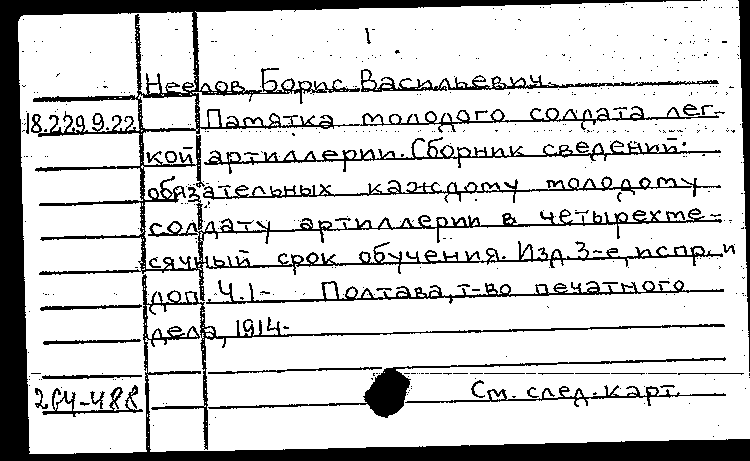 1
Неелов, Борис Васильевич.
18.229.9.22 Памятка молодого солдата лег-
кой артиллерии. Сборник сведений
обязательных каждому молодому
солдату артиллерии в четырехме-
сячный срок обучения. Изд. 3-е, испр. и
доп. Ч.1- Полтава, т-во печатного
дела, 1914-
264-488 См. след. карт.